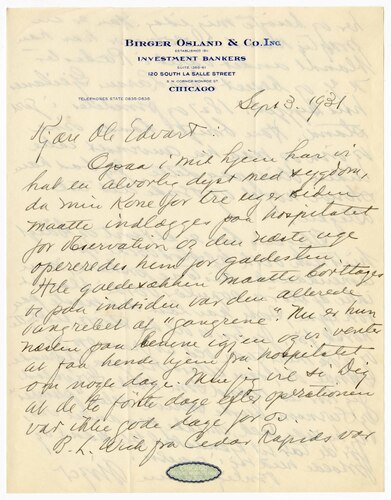 BIRGER OSLAND & CO. INC.
ESTABLISHED 1911
INVESTMENT BANKERS
120 SOUTH LA SALLE STREET
S. W. CORNER MONROE ST.
CHICAGO
TELEPHONES STATE 0635-0636
Sept 3. 1931
Kjære Ole Edvart:
Ogsaa i mit hjem har vi
hat en alvorlig dyst med sygdom,
da min Kone for tre uger siden
maatte indlægges paa hospitalet
for observation og den næste uge
opereredes hun for galdesten.
Hele galdesækken maatte borttages
og paa indsiden var den allerede
angrebet af "gangrene". Nu er hun
næsten paa benene igjen og vi venter
at faa hende hjem fra hospitalet
om nogle dage. Men jeg vil si Dig
at de to første dage efter operationen
var ikke gode dage for os.
B. L. Wick fra Cedar Rapids var